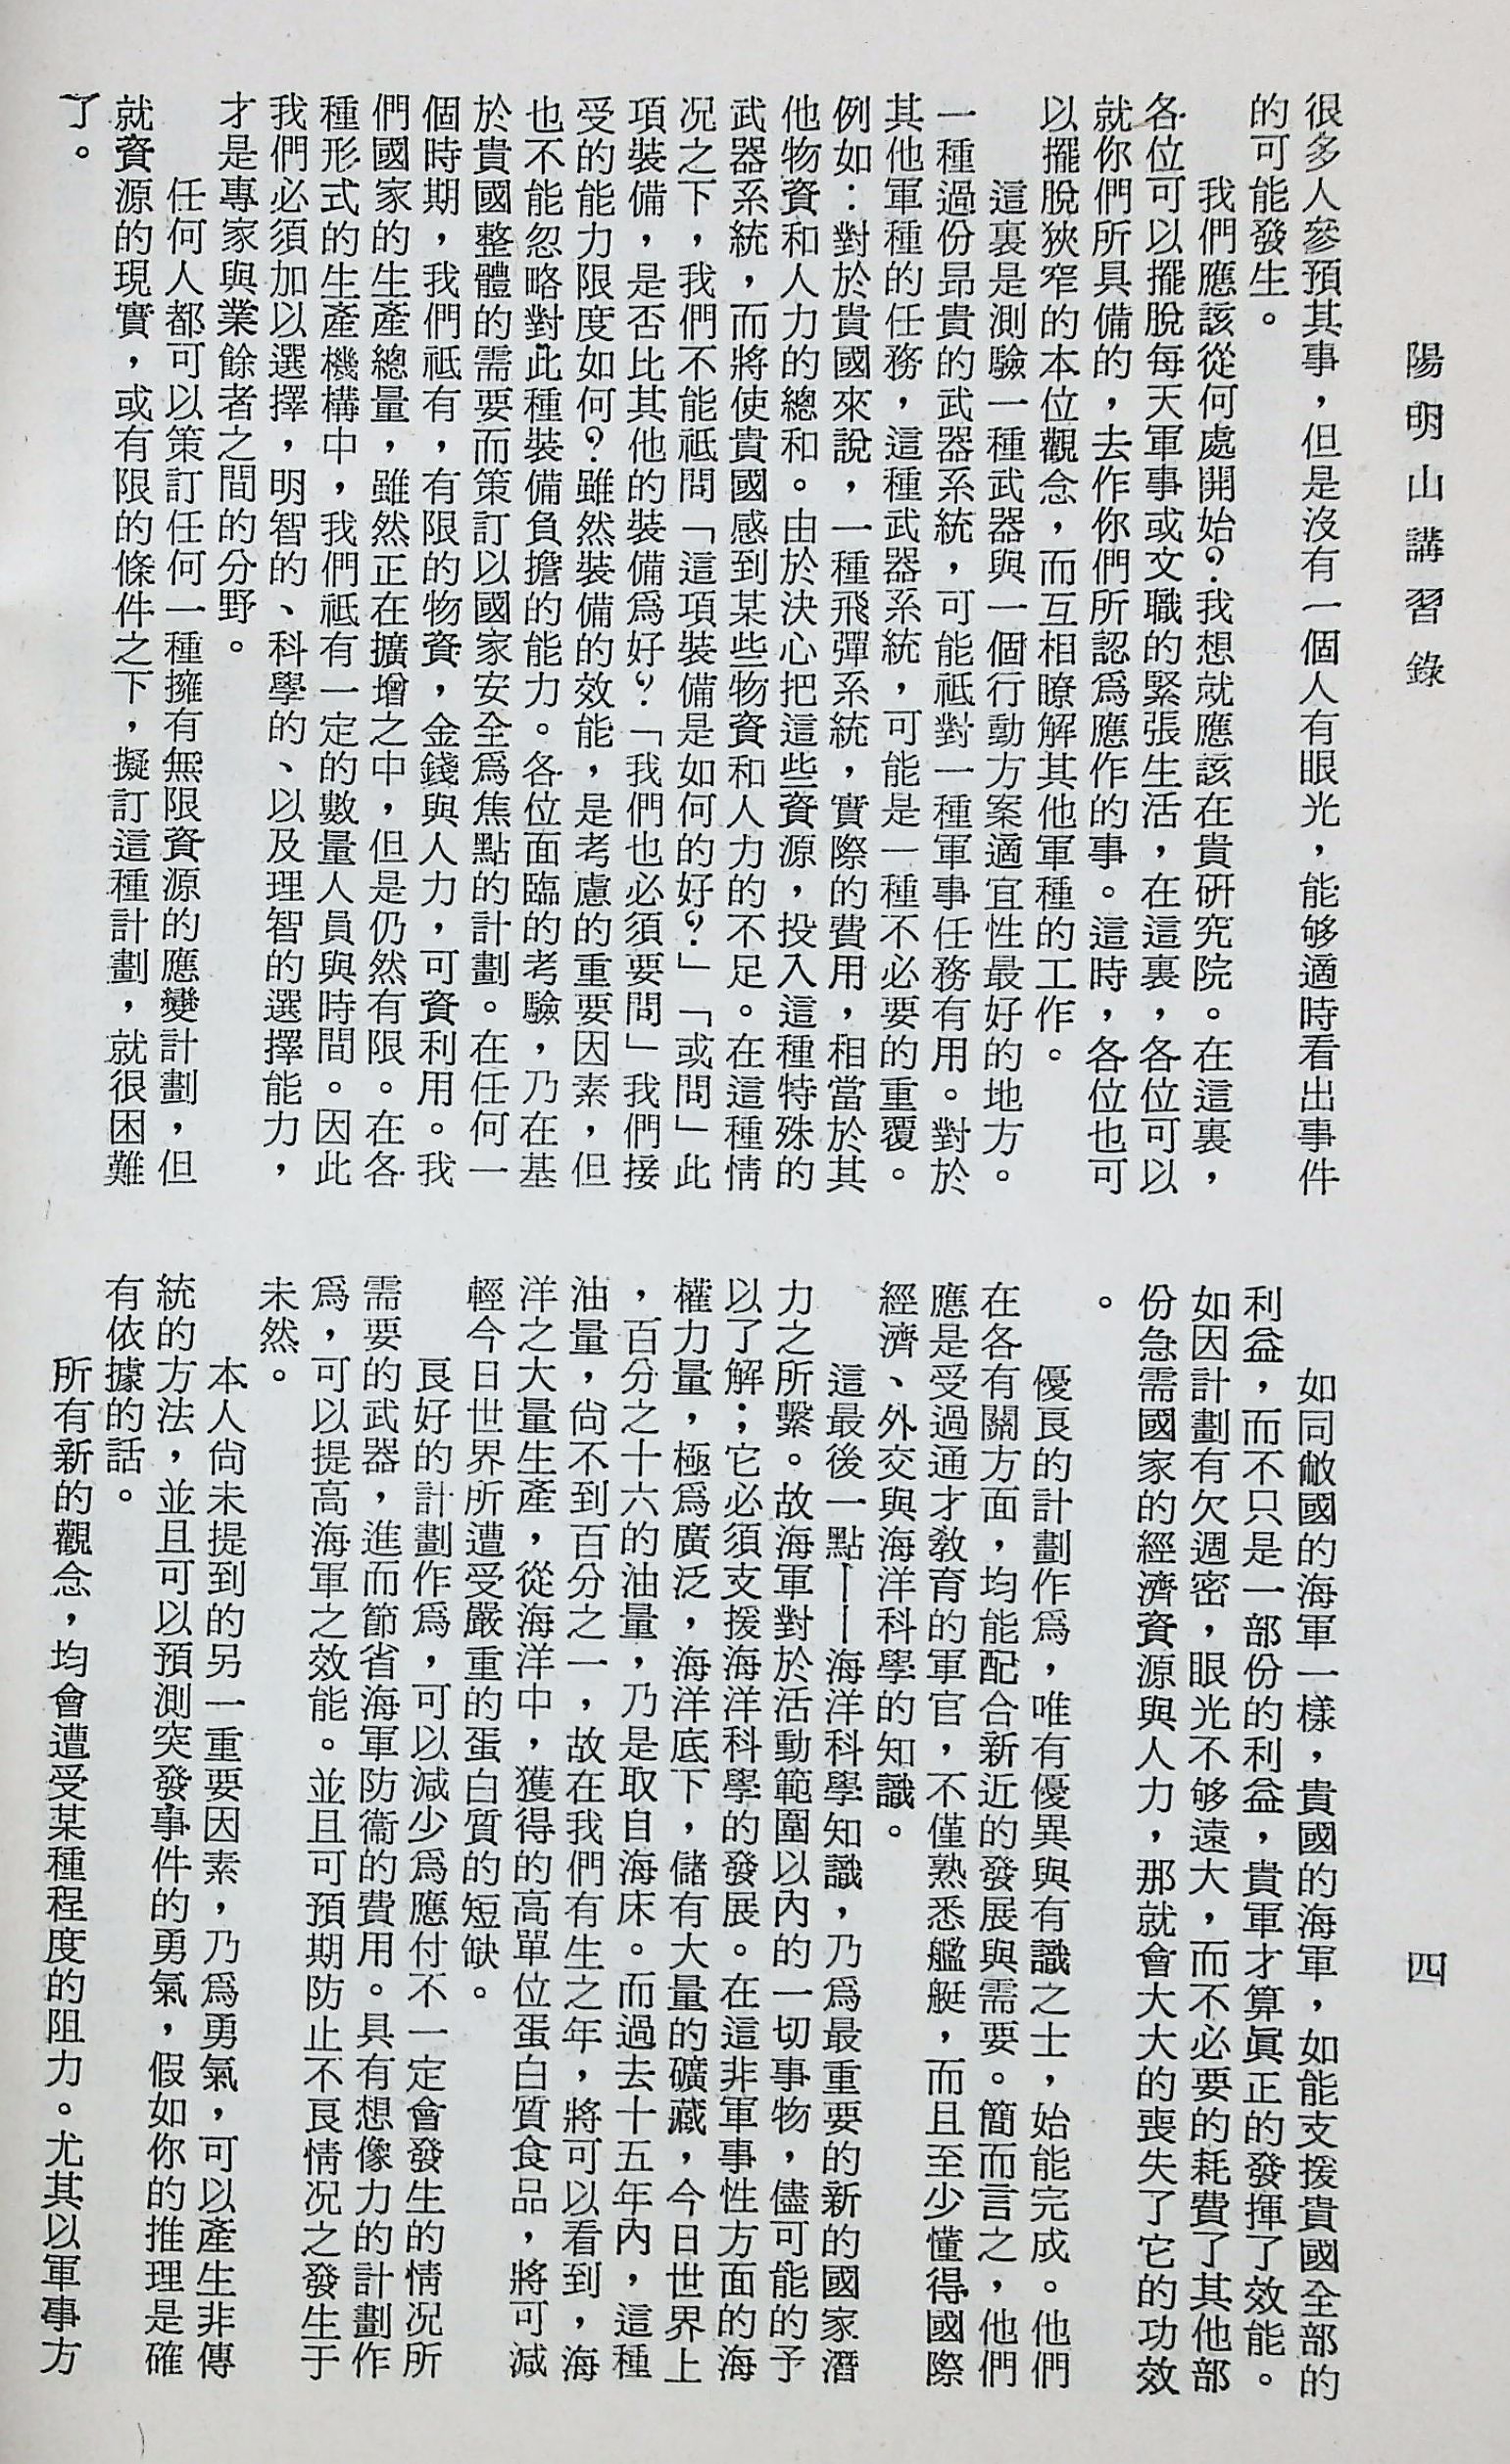 陽明山講習錄
四
很多人參預其事，但是沒有一個人有眼光，能够適時看出事件
的可能發生。
我們應該從何處開始？我想就應該在貴研究院。在這裏，
各位可以擺脫每天軍事或文職的緊張生活，在這裏，各位可以
就你們所具備的，去作你們所認爲應作的事。這時，各位也可
以擺脫狹窄的本位觀念，而互相瞭解其他軍種的工作。
這裏是測驗一種武器與一個行動方案適宜性最好的地方。
一種過份昂貴的武器系統，可能祗對一種軍事任務有用。對於
其他軍種的任務，這種武器系統，可能是一種不必要的重覆。
例如：對於貴國來說，一種飛彈系統，實際的費用，相當於其
他物資和人力的總和。由於決心把這些資源，投入這種特殊的
武器系統，而將使貴國感到某些物資和人力的不足。在這種情
况之下，我們不能祗問「這項裝備是如何的好？」「或問」此
項裝備，是否比其他的裝備爲好？「我們也必須要問」我們接
受的能力限度如何？雖然裝備的效能，是考慮的重要因素，但
也不能忽略對此種裝備負擔的能力。各位面臨的考驗，乃在基
於貴國整體的需要而策訂以國家安全爲焦點的計劃。在任何一
個時期，我們祗有，有限的物資，金錢與人力，可資利用。我
們國家的生產總量，雖然正在擴增之中，但是仍然有限。在各
種形式的生產機構中，我們祗有一定的數量人員與時間。因此
我們必須加以選擇，明智的、科學的、以及理智的選擇能力，
才是專家與業餘者之間的分野。
任何人都可以策訂任何一種擁有無限資源的應變計劃，但
就資源的現實，或有限的條件之下，擬訂這種計劃，就很困難
了。
如同敝國的海軍一樣，貴國的海軍，如能支援貴國全部的
利益，而不只是一部份的利益，貴軍才算眞正的發揮了效能。
如因計劃有欠週密，眼光不够遠大，而不必要的耗費了其他部
份急需國家的經濟資源與人力，那就會大大的喪失了它的功效
。
優良的計劃作爲，唯有優異與有識之士，始能完成。他們
在各有關方面，均能配合新近的發展與需要。簡而言之，他們
應是受過通才教育的軍官，不僅熟悉艦艇，而且至少懂得國際
經濟、外交與海洋科學的知識。
這最後一點——海洋科學知識，乃爲最重要的新的國家潛
力之所繫。故海軍對於活動範圍以內的一切事物，儘可能的予
以了解；它必須支援海洋科學的發展。在這非軍事性方面的海
權力量，極爲廣泛，海洋底下，儲有大量的礦藏，今日世界上
，百分之十六的油量，乃是取自海床。而過去十五年內，這種
油量，尙不到百分之一，故在我們有生之年，將可以看到，海
洋之大量生產，從海洋中，獲得的高單位蛋白質食品，將可減
輕今日世界所遭受嚴重的蛋白質的短缺。
良好的計劃作爲，可以減少爲應付不一定會發生的情况所
需要的武器，進而節省海軍防衞的費用。具有想像力的計劃作
爲，可以提高海軍之效能。並且可預期防止不良情况之發生于
未然。
本人尙未提到的另一重要因素，乃爲勇氣，可以產生非傳
統的方法，並且可以預測突發事件的勇氣，假如你的推理是確
有依據的話。
所有新的觀念，均會遭受某種程度的阻力。尤其以軍事方